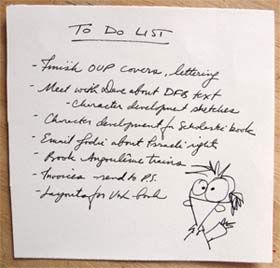 TO DO LIST
- Finish OUP covers, lettering
- Meet with Dave about DFB text
- Character development sketches
- Character development for Scholastic book
- Email Jodie about Israeli right
- Book Angoulême trains
- Invoices - send to P.S.
- Layouts for book